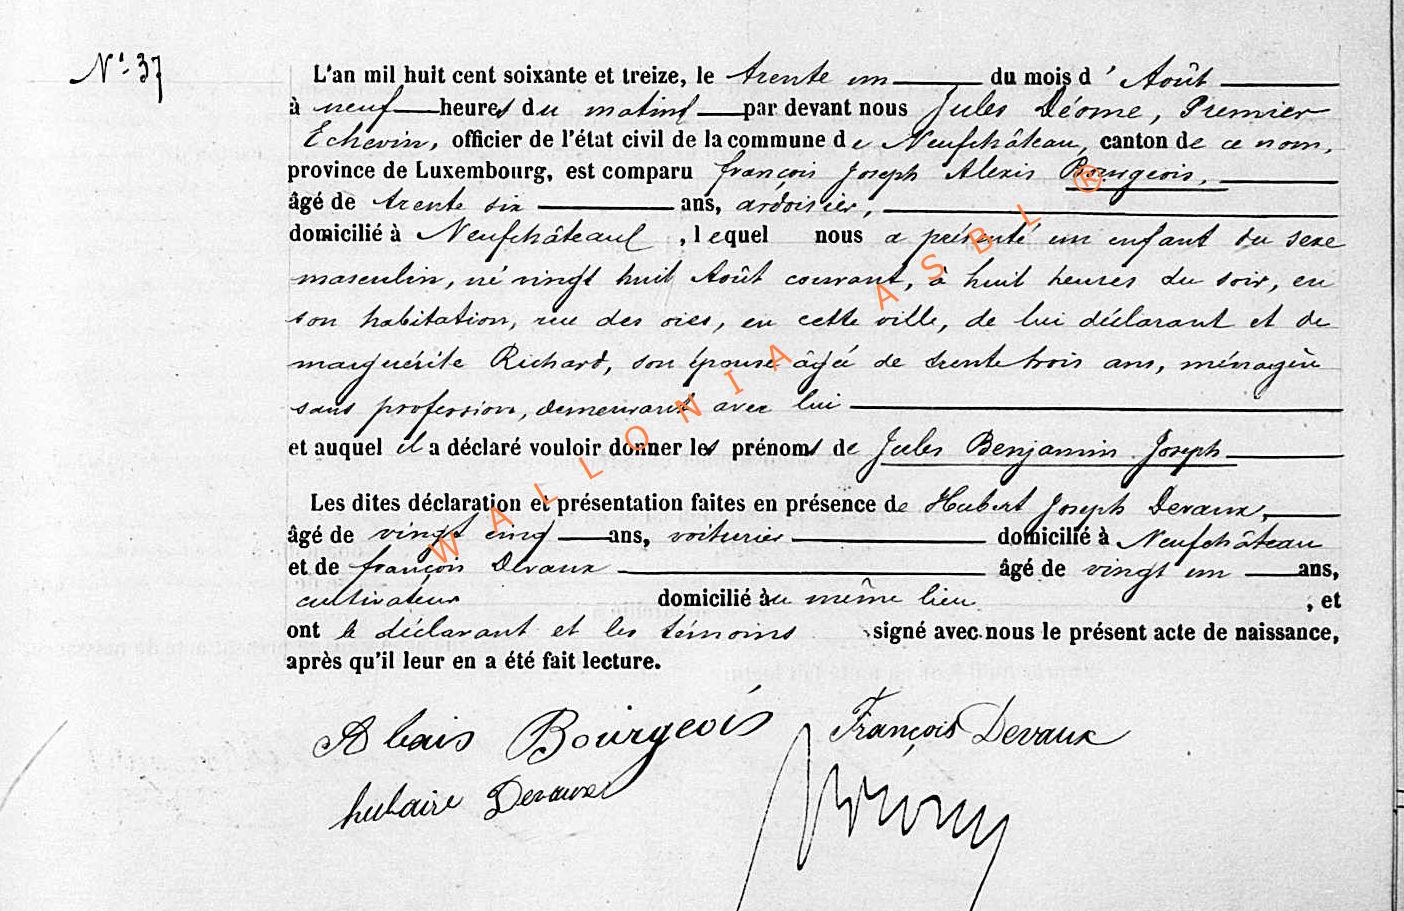 Nº 37
L'an mil huit cent soixante et treize, le trente un du mois d'Août
à neuf heures du matin par devant nous Jules Déome, Premier
Echevin, officier de l'état civil de la commune de Neufchâteau, canton de ce nom,
province de Luxembourg, est comparu françois Joseph Alexis Bourgeois,
âgé de trente six ans, ardoisier,
domicilié à Neufchâteau, lequel nous a présenté un enfant du sexe
masculin, né vingt huit Août courant, à huit heures du soir, en
son habitation, rue des oies, en cette ville, de lui déclarant et de
marguérite Richard, son épouse âgée de trente trois ans, ménagère
sans profession, demeurant avec lui
et auquel il a déclaré vouloir donner les prénoms de Jules Benjamin Joseph
Les dites déclaration et présentation faites en présence de Hubert Joseph Devaux,
âgé de vingt cinq ans, voiturier domicilié à Neufchâteau
et de françois Devaux âgé de vingt un ans,
cultivateur domicilié au même lieu, et
ont le déclarant et les témoins signé avec nous le présent acte de naissance,
après qu'il leur en a été fait lecture.
Bourgeois François Devaux
Devaux
WALLONIA ASBL ®